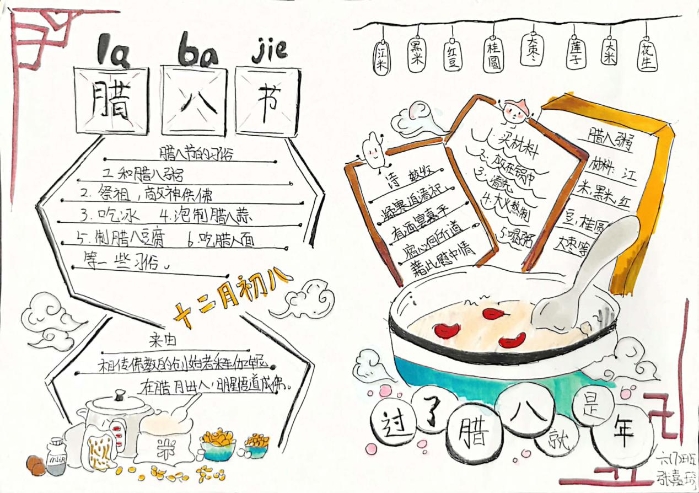 la ba jie
腊 八 节
腊八节的习俗
1. 和腊八粥
2. 祭祖,敬神供佛
3. 吃冰 4. 泡制腊八蒜
5. 制腊八豆腐 6. 吃腊八面
等一些习俗。
十二月初八
来由
在腊月出八,明醒悟道成佛。
米
江米
黑米
红豆
桂圆
大枣
莲子
大米
花生
诗
1. 买材料
2. 放在锅中
3. 清洗
4. 大火熬制
5. 喝粥
腊八粥
材料:江
米,黑米,红
豆,桂圆
大枣等
过了腊八就是年